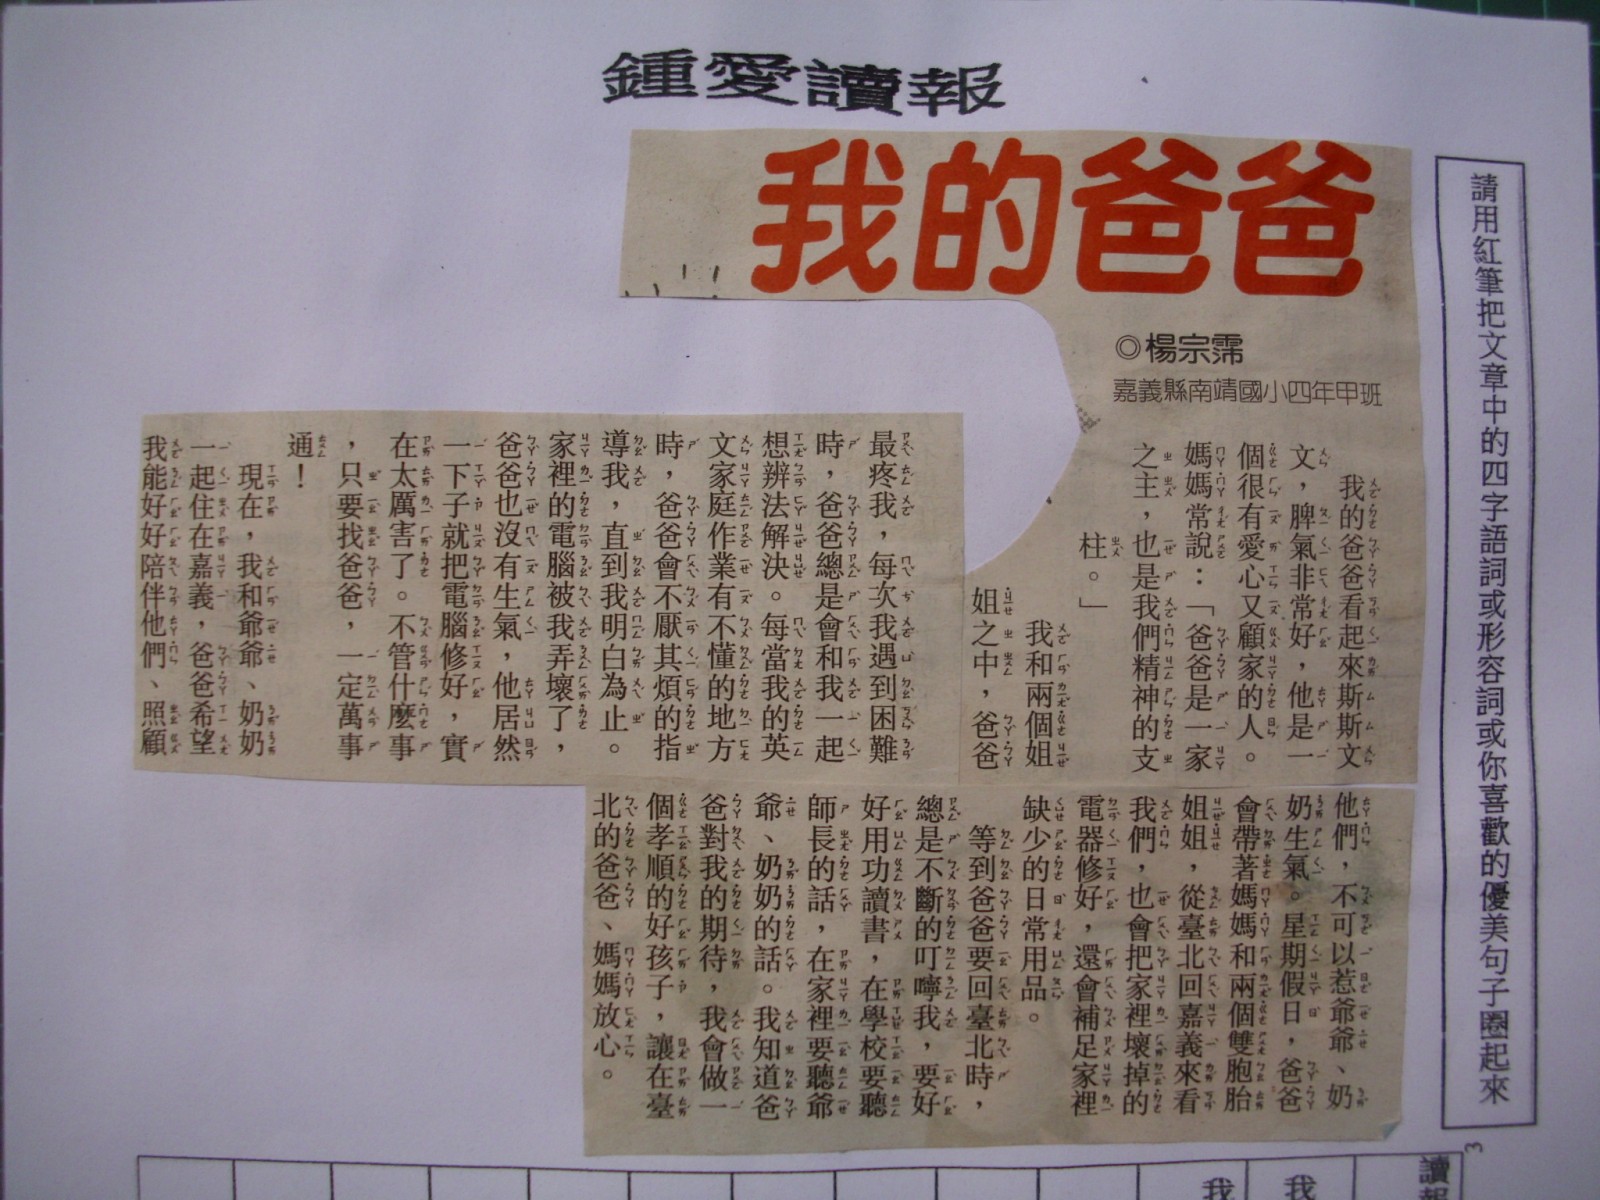 鍾愛讀報
我的爸爸
◎楊宗霈
嘉義縣南靖國小四年甲班
請用紅筆把文章中的四字語詞或形容詞或你喜歡的優美句子圈起來
我的爸爸看起來斯斯文
文，脾氣非常好，他是一
個很有愛心又顧家的人。
媽媽常說：「爸爸是一家
之主，也是我們精神的支
柱。」
我和兩個姐
姐之中，爸爸
最疼我，每次我遇到困難
時，爸爸總是會和我一起
想辨法解決。每當我的英
文家庭作業有不懂的地方
時，爸爸會不厭其煩的指
導我，直到我明白為止。
家裡的電腦被我弄壞了，
爸爸也沒有生氣，他居然
一下子就把電腦修好，實
在太厲害了。不管什麼事
，只要找爸爸，一定萬事
通！
現在，我和爺爺、奶奶
一起住在嘉義，爸爸希望
我能好好陪伴他們、照顧
他們，不可以惹爺爺、奶
奶生氣。星期假日，爸爸
會帶著媽媽和兩個雙胞胎
姐姐，從臺北回嘉義來看
我們，也會把家裡壞掉的
電器修好，還會補足家裡
缺少的日常用品。
等到爸爸要回臺北時，
總是不斷的叮嚀我，要好
好用功讀書，在學校要聽
師長的話，在家裡要聽爺
爺、奶奶的話。我知道爸
爸對我的期待，我會做一
個孝順的好孩子，讓在臺
北的爸爸、媽媽放心。
3
讀報
我
我